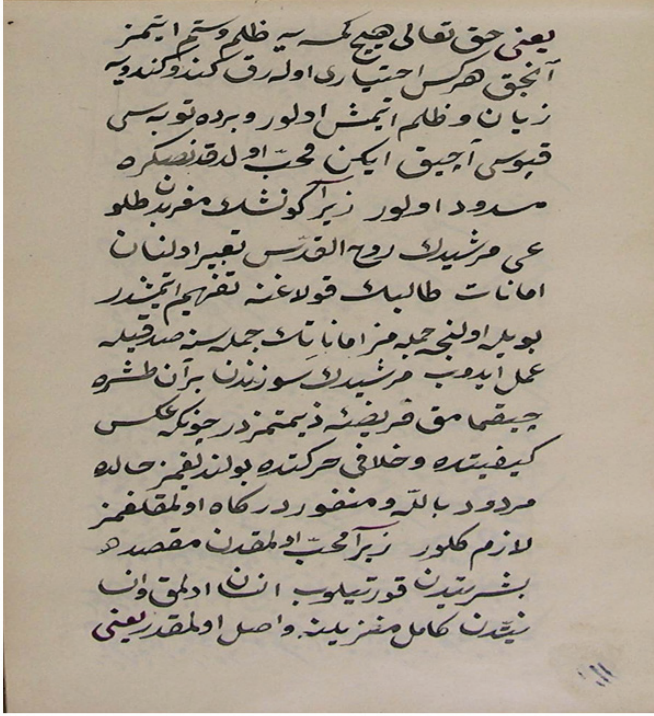 يعنى حق تعالى هيچ كمسه يه ظلم وستم ايتمز
آنجق هركس اختيارى اوله رق كندو كندويه
زيان و ظلم ايتمش اولور وبرده توبه سى
قپوسى آچيق ايكن محبّ اولدقدنصكره
مسدود اولور زيرا كونشك مغربدن طلو
عى مرشيدك روح القدس تعبير اولنان
امانات طالبك قولاغنه تفهيم ايتميشدر
بويله اولنجه جمله مز اماناتك جمله سنه صدقيله
عمل ايدوب مرشيدك سوزندن برآن طشره
چيقمامق فريضهٔ ذيمتمزدر چونكه عكس
كيفيتده و خلافى حركتده بولنديغمز حالده
مردود بالله و منفور دركاه اولمقلغمز
لازم كلور زيرا محبّ اولمقدن مقصده
بشريتيدن قورتيلوب انسان اولمق وانسا
نيتدن كامل منزيلنه واصل اولمقدر يعنى